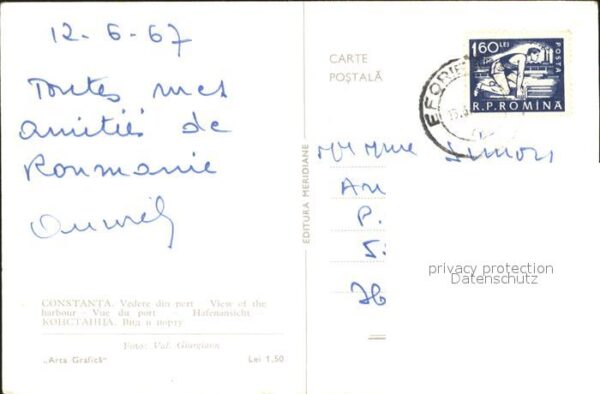 12-6-67
Toutes mes
amitiés de
Roumanie
CONSTANȚA. Vedere din port - View of the
harbour - Vue du port - Hafenansicht -
КОНСТАНЦА. Вид в порту.
Foto: Val. Giurgiann
„Arta Grafică" Lei 1,50
EDITURA MERIDIANE
CARTE
POȘTALĂ
1,60 LEI
POSTA
R.P.ROMINA
EFORIE
M M Mme Simon
An
P.
S.
privacy protection
Datenschutz